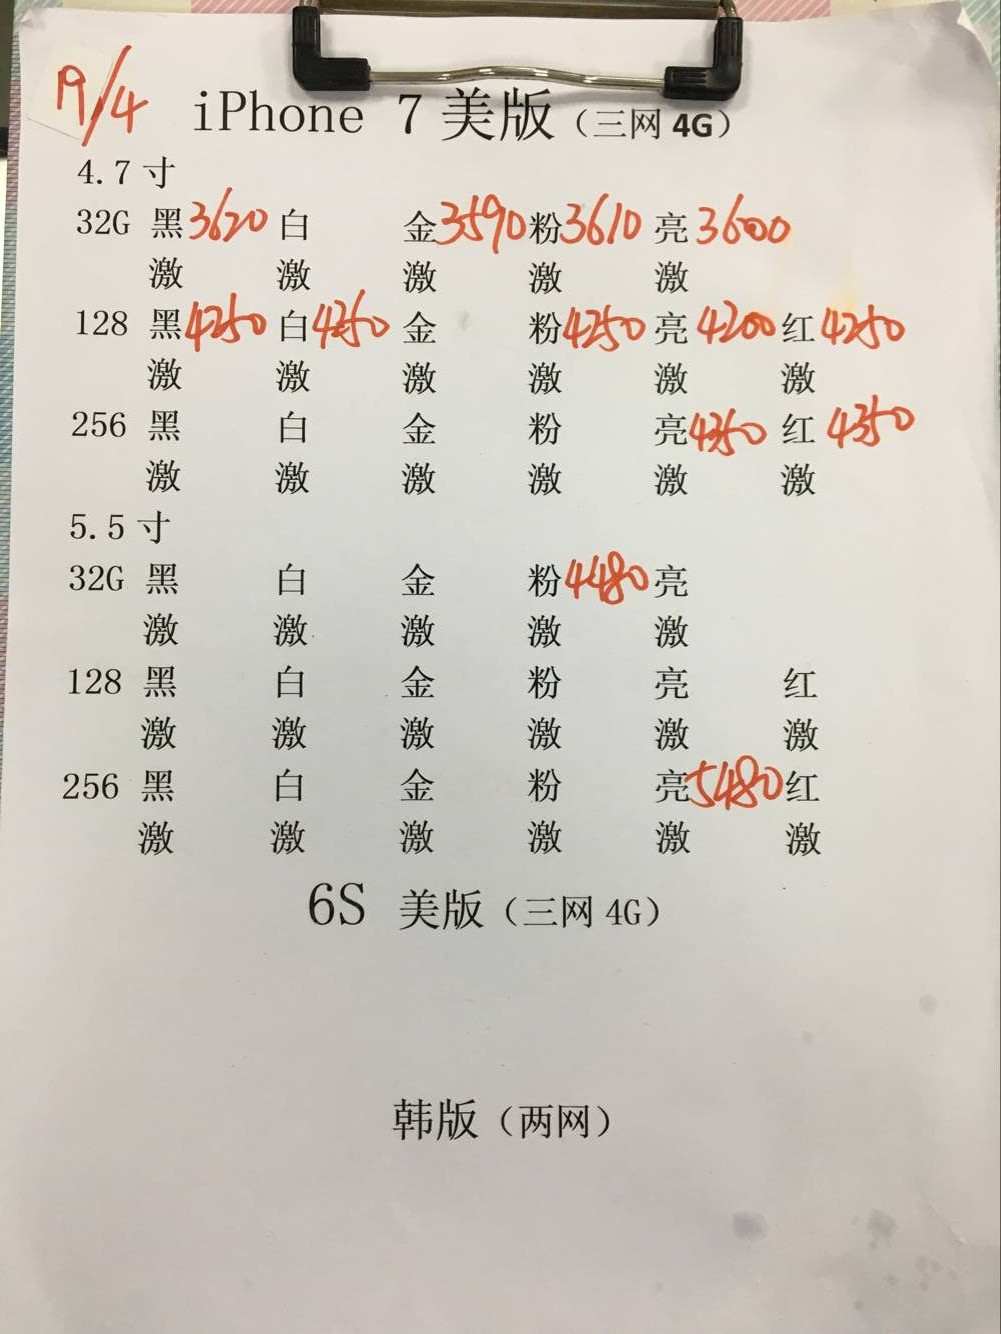 19/4 iPhone 7 美版（三网 4G）
4.7寸
32G 黑 3620 白 金 3590 粉 3610 亮 3600
激 激 激 激 激
128 黑 4250 白 4250 金 粉 4250 亮 4200 红 4250
激 激 激 激 激 激
256 黑 白 金 粉 亮 4350 红 4350
激 激 激 激 激 激
5.5寸
32G 黑 白 金 粉 4480 亮
激 激 激 激 激
128 黑 白 金 粉 亮 红
激 激 激 激 激 激
256 黑 白 金 粉 亮 5480 红
激 激 激 激 激 激
6S 美版（三网 4G）
韩版（两网）